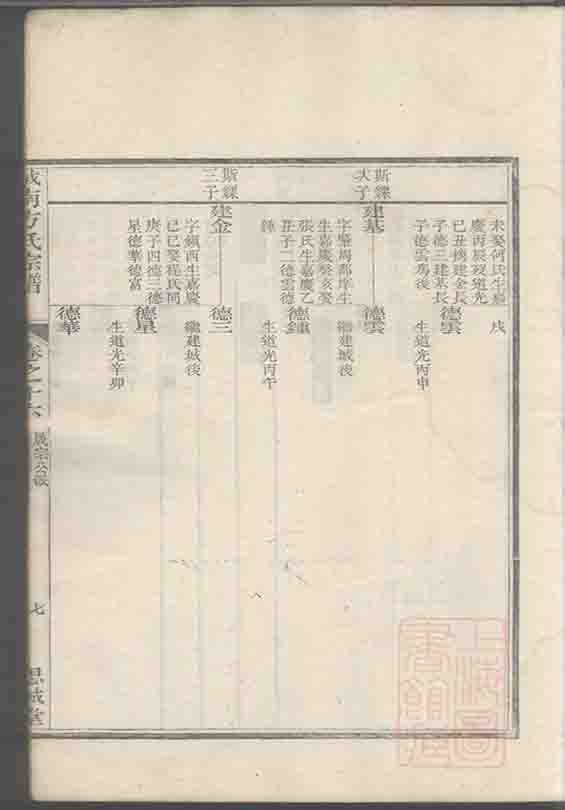 未娶何氏生嘉
慶丙辰歿道光
己丑擇建金長
子德三建基長
子德雲為後
戌
德雲
生道光丙申
斯
大子
建基
字肇周郡庠生
生嘉慶癸亥娶
張氏生嘉慶乙
丑子二德雲德
德雲
繼建城後
德
生道光丙午
斯
三子
建金
字鎮西生嘉慶
己巳娶程氏同
庚子四德三德
星德華德富
德三
繼建城後
德星
生道光辛卯
德華
城南方氏宗譜
卷之十六
宗公派
七
思誠堂
上海圖
書館藏